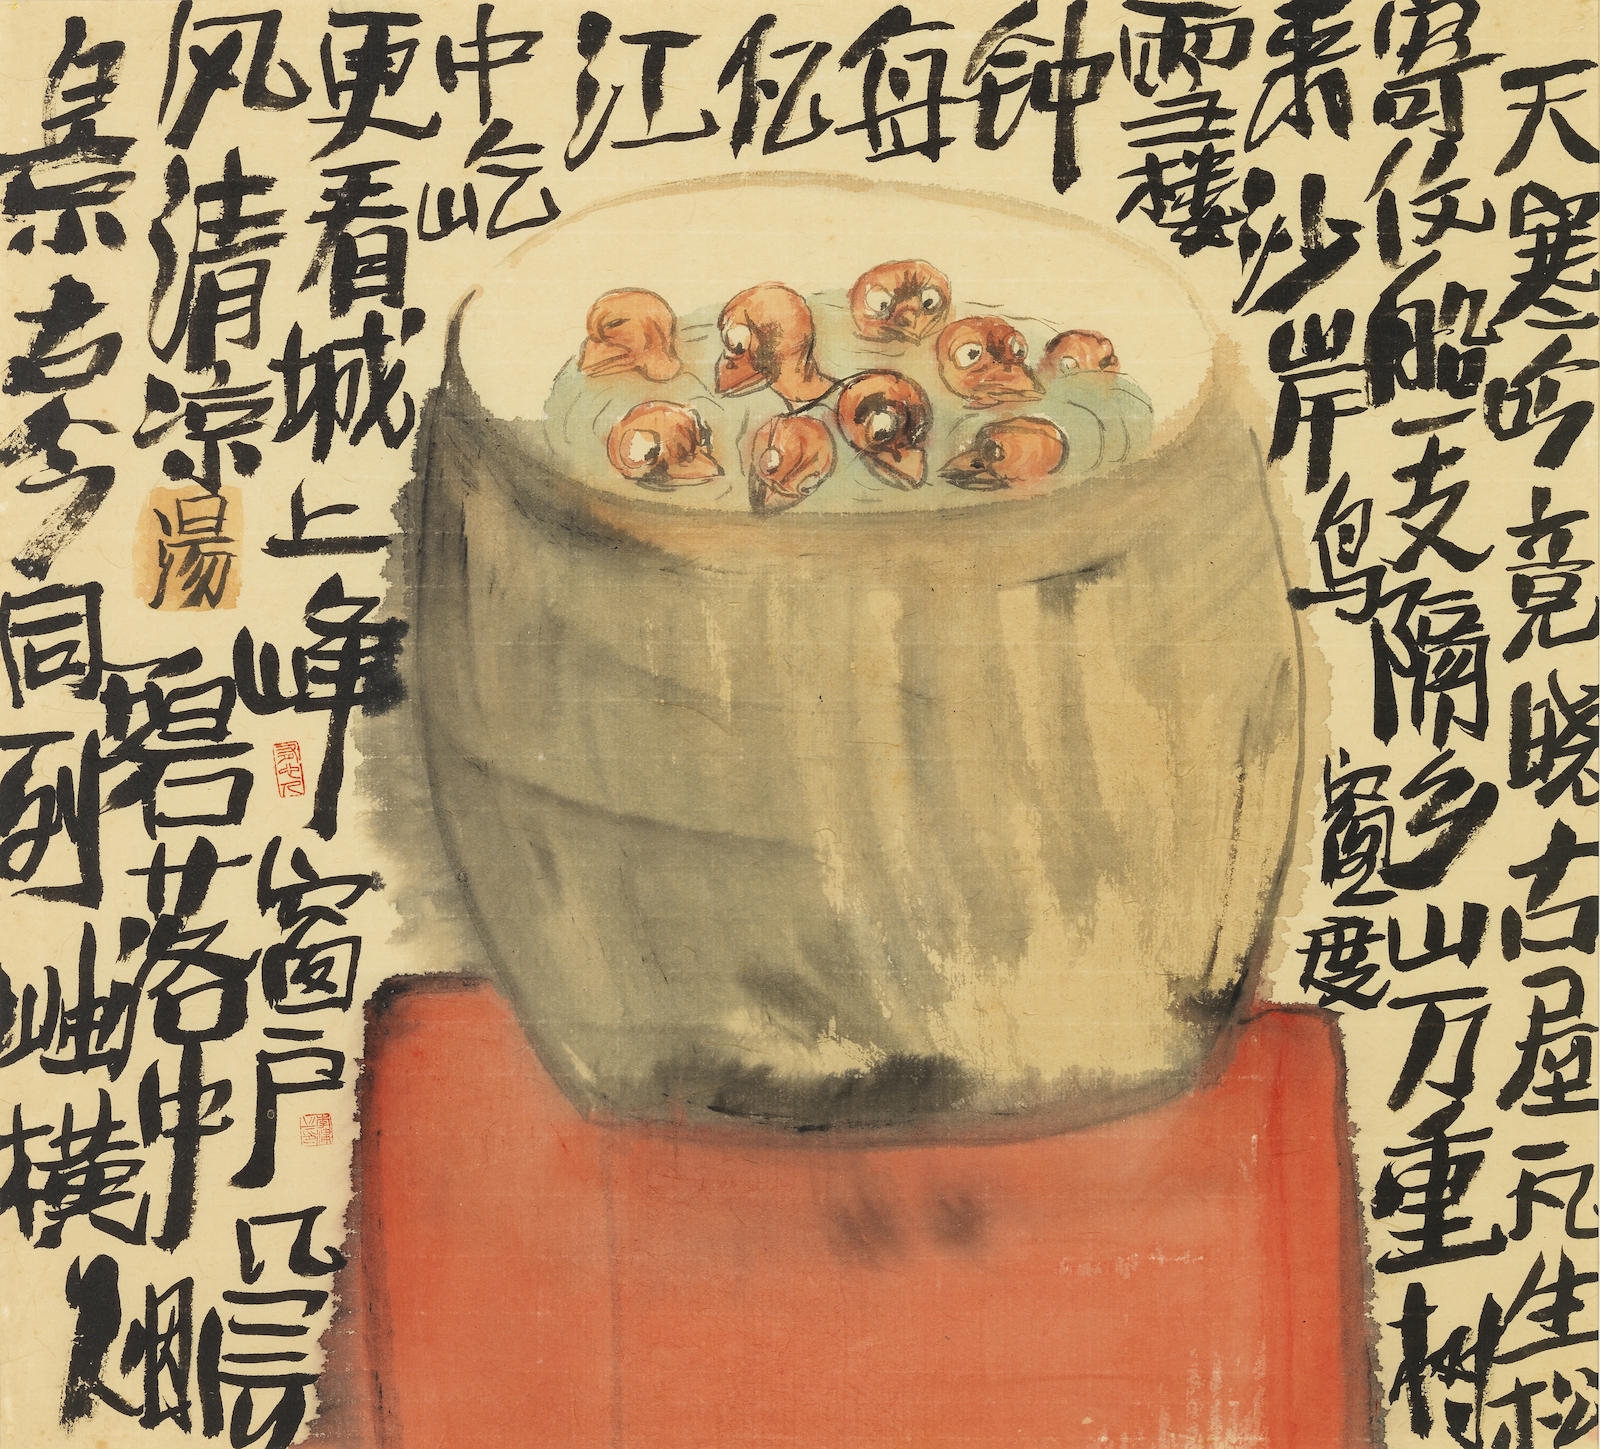 天寒吟竟晓古屋瓦生松
寄伩船一支隔乡山万重树
来沙岸鸟窗度
雪楼
钟
每
忆
江
中屹
更看城上峰窗户几层
风清凉碧落中
湯
皇京古今同列岫横烟